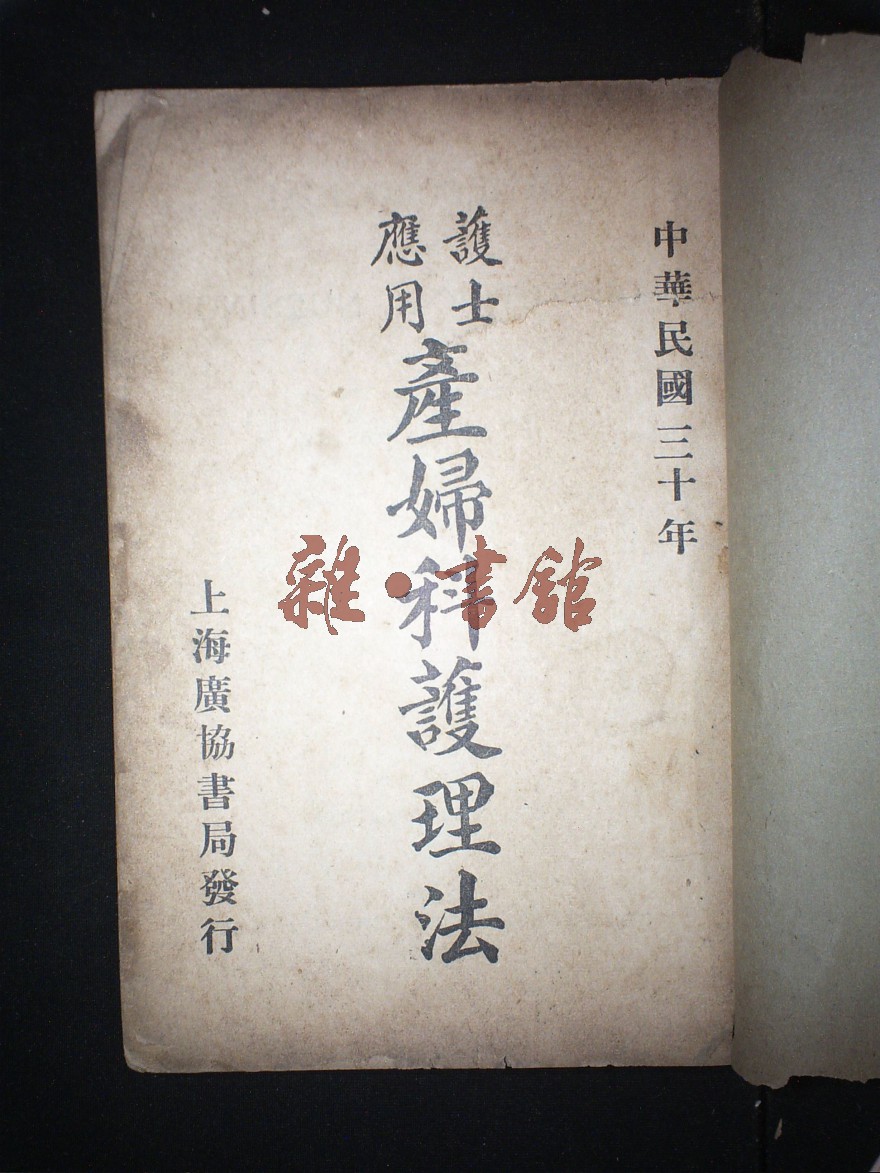 中華民國三十年
護士
應用
產婦科護理法
上海廣協書局發行
雜·書館